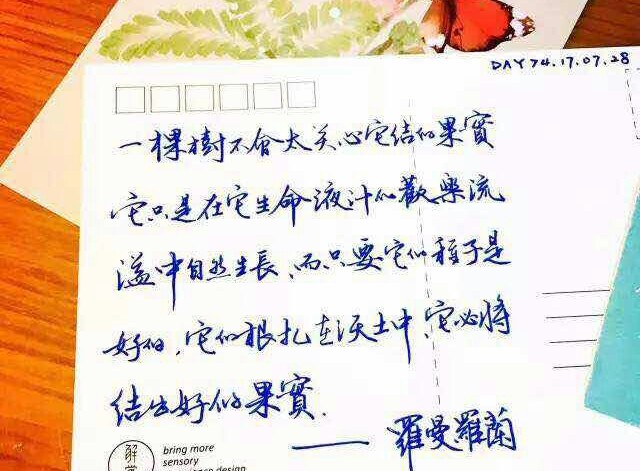 DAY 74.17.07.28
一棵樹不会太关心它结的果實
它只是在它生命液汁的歡樂流
溢中自然生長、而只要它的種子是
好的，它的根扎在沃土中，它必將
结出好的果實.
—— 羅曼羅蘭
bring more
sensory